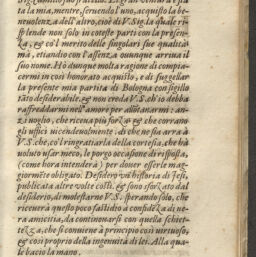 la la mia, mente, seruendo l'uno, acquisto la be-
neuolenza dell'altro, cioè di V. Sig. la quale ri-
splende non solo in coteste parti con la presen-
za, & co'l merito delle singolari sue qualità
mà, etiandio con l'assenza ounque arriua il
suo nome. Hò dunque molta ragione di compia-
cermi in così honorato acquisto, e di suggellar
la presente mia partita di Bologna con sigillo
tāto desiderabile. & non creda V. S. ch'io debba
raffreddarmi nell'amore per allontanarmi: an-
zi uoglio, che riceua più forza & che corrano
gli uffici uicendeuolmente: di che ne sia arra à
V. S. che, co'l ringratiarla della cortesia, che hà
uoluto usar meco, le porgo occasione di risposta,
(come hora intenderà) per douer esserle mag-
giormēte obligato. Desidero vn' historia di Jesi,
publicata altre volte costì. & sono sforzato dal
desiderio, di molestarne V. S. sperando solo, che
riceuerà questo poco fastidio a confidēza di ue-
ra amicitia, da continouarsi con quella schiet-
tezza, che si conuiene à principio così virtuoso,
& così proprio della ingenuità di lei. Alla qua-
le bacio la mano.